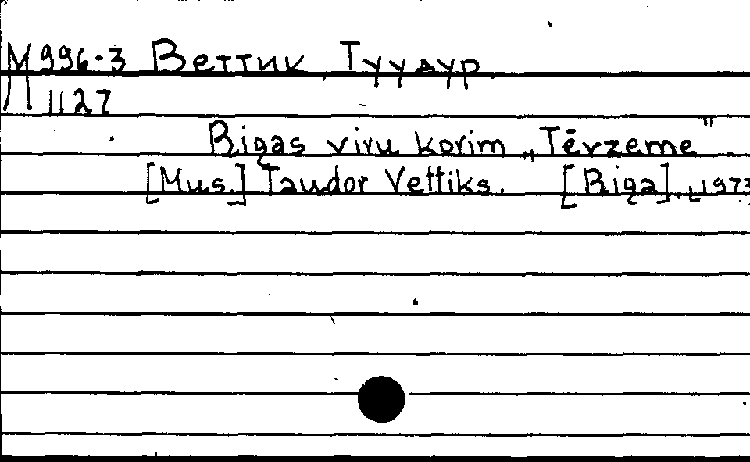 М 996-3 Веттик Туудур
1127
Rigas viru korim „Tēvzeme"
[Mus.] Taudor Vettiks. [Riga], [1973